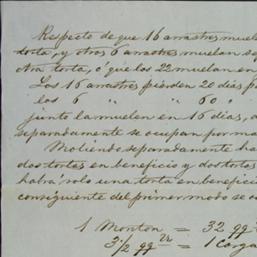 Respecto de que 16 arrastres muelan
torta, y otros 6 arrastres muelan se
otra torta, ó que los 22 muelan en
Los 16 arrastres pierden 20 dias p
los 6 " " 60 "
junto la muelen en 16 dias,
separadamente se ocupan por ma
Moliendo separadamente ha
dos tortas en beneficio y dos tortas
habrá solo una torta en beneficio
consiguiente del primer modo se o
1 Monton = 32 qq
3½ qq = 1 Carga